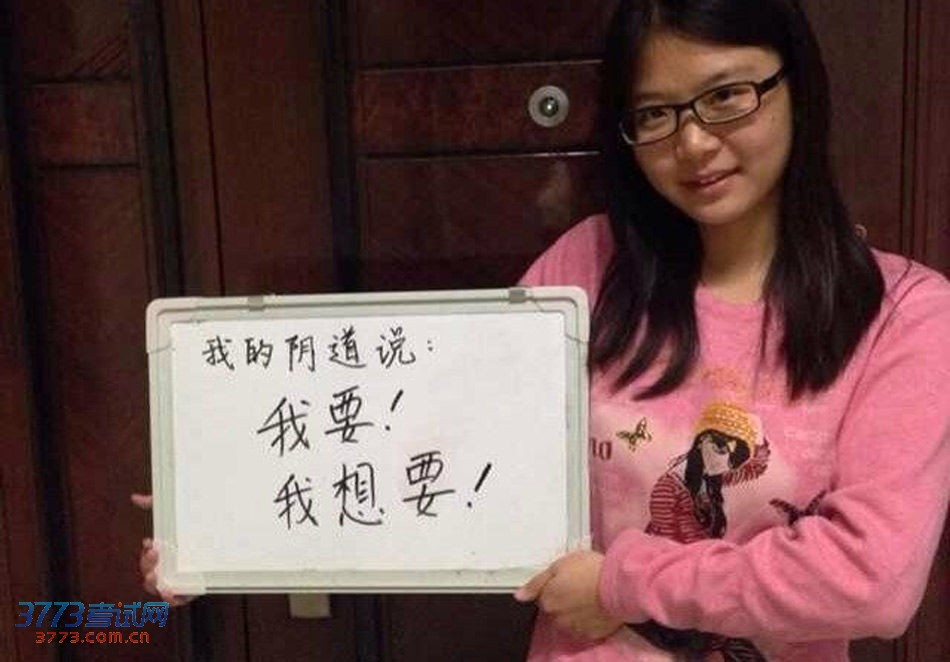 我的阴道说：
我要！
我想要！
3773考试网
3773.com.cn